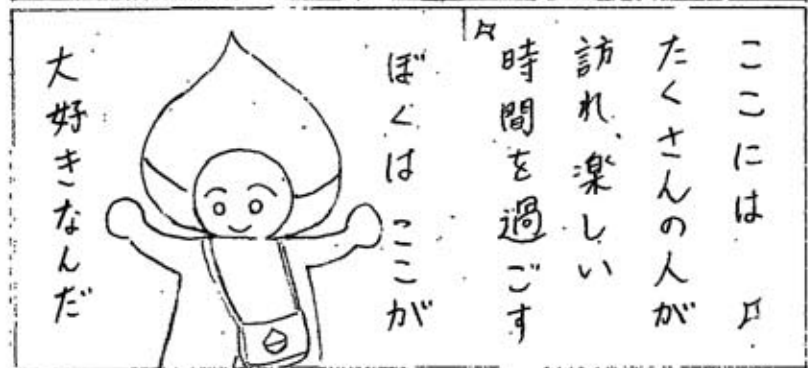 ここには
たくさんの人が
訪れ、楽しい
時間を過ごす
ぼくは ここが
大好きなんだ